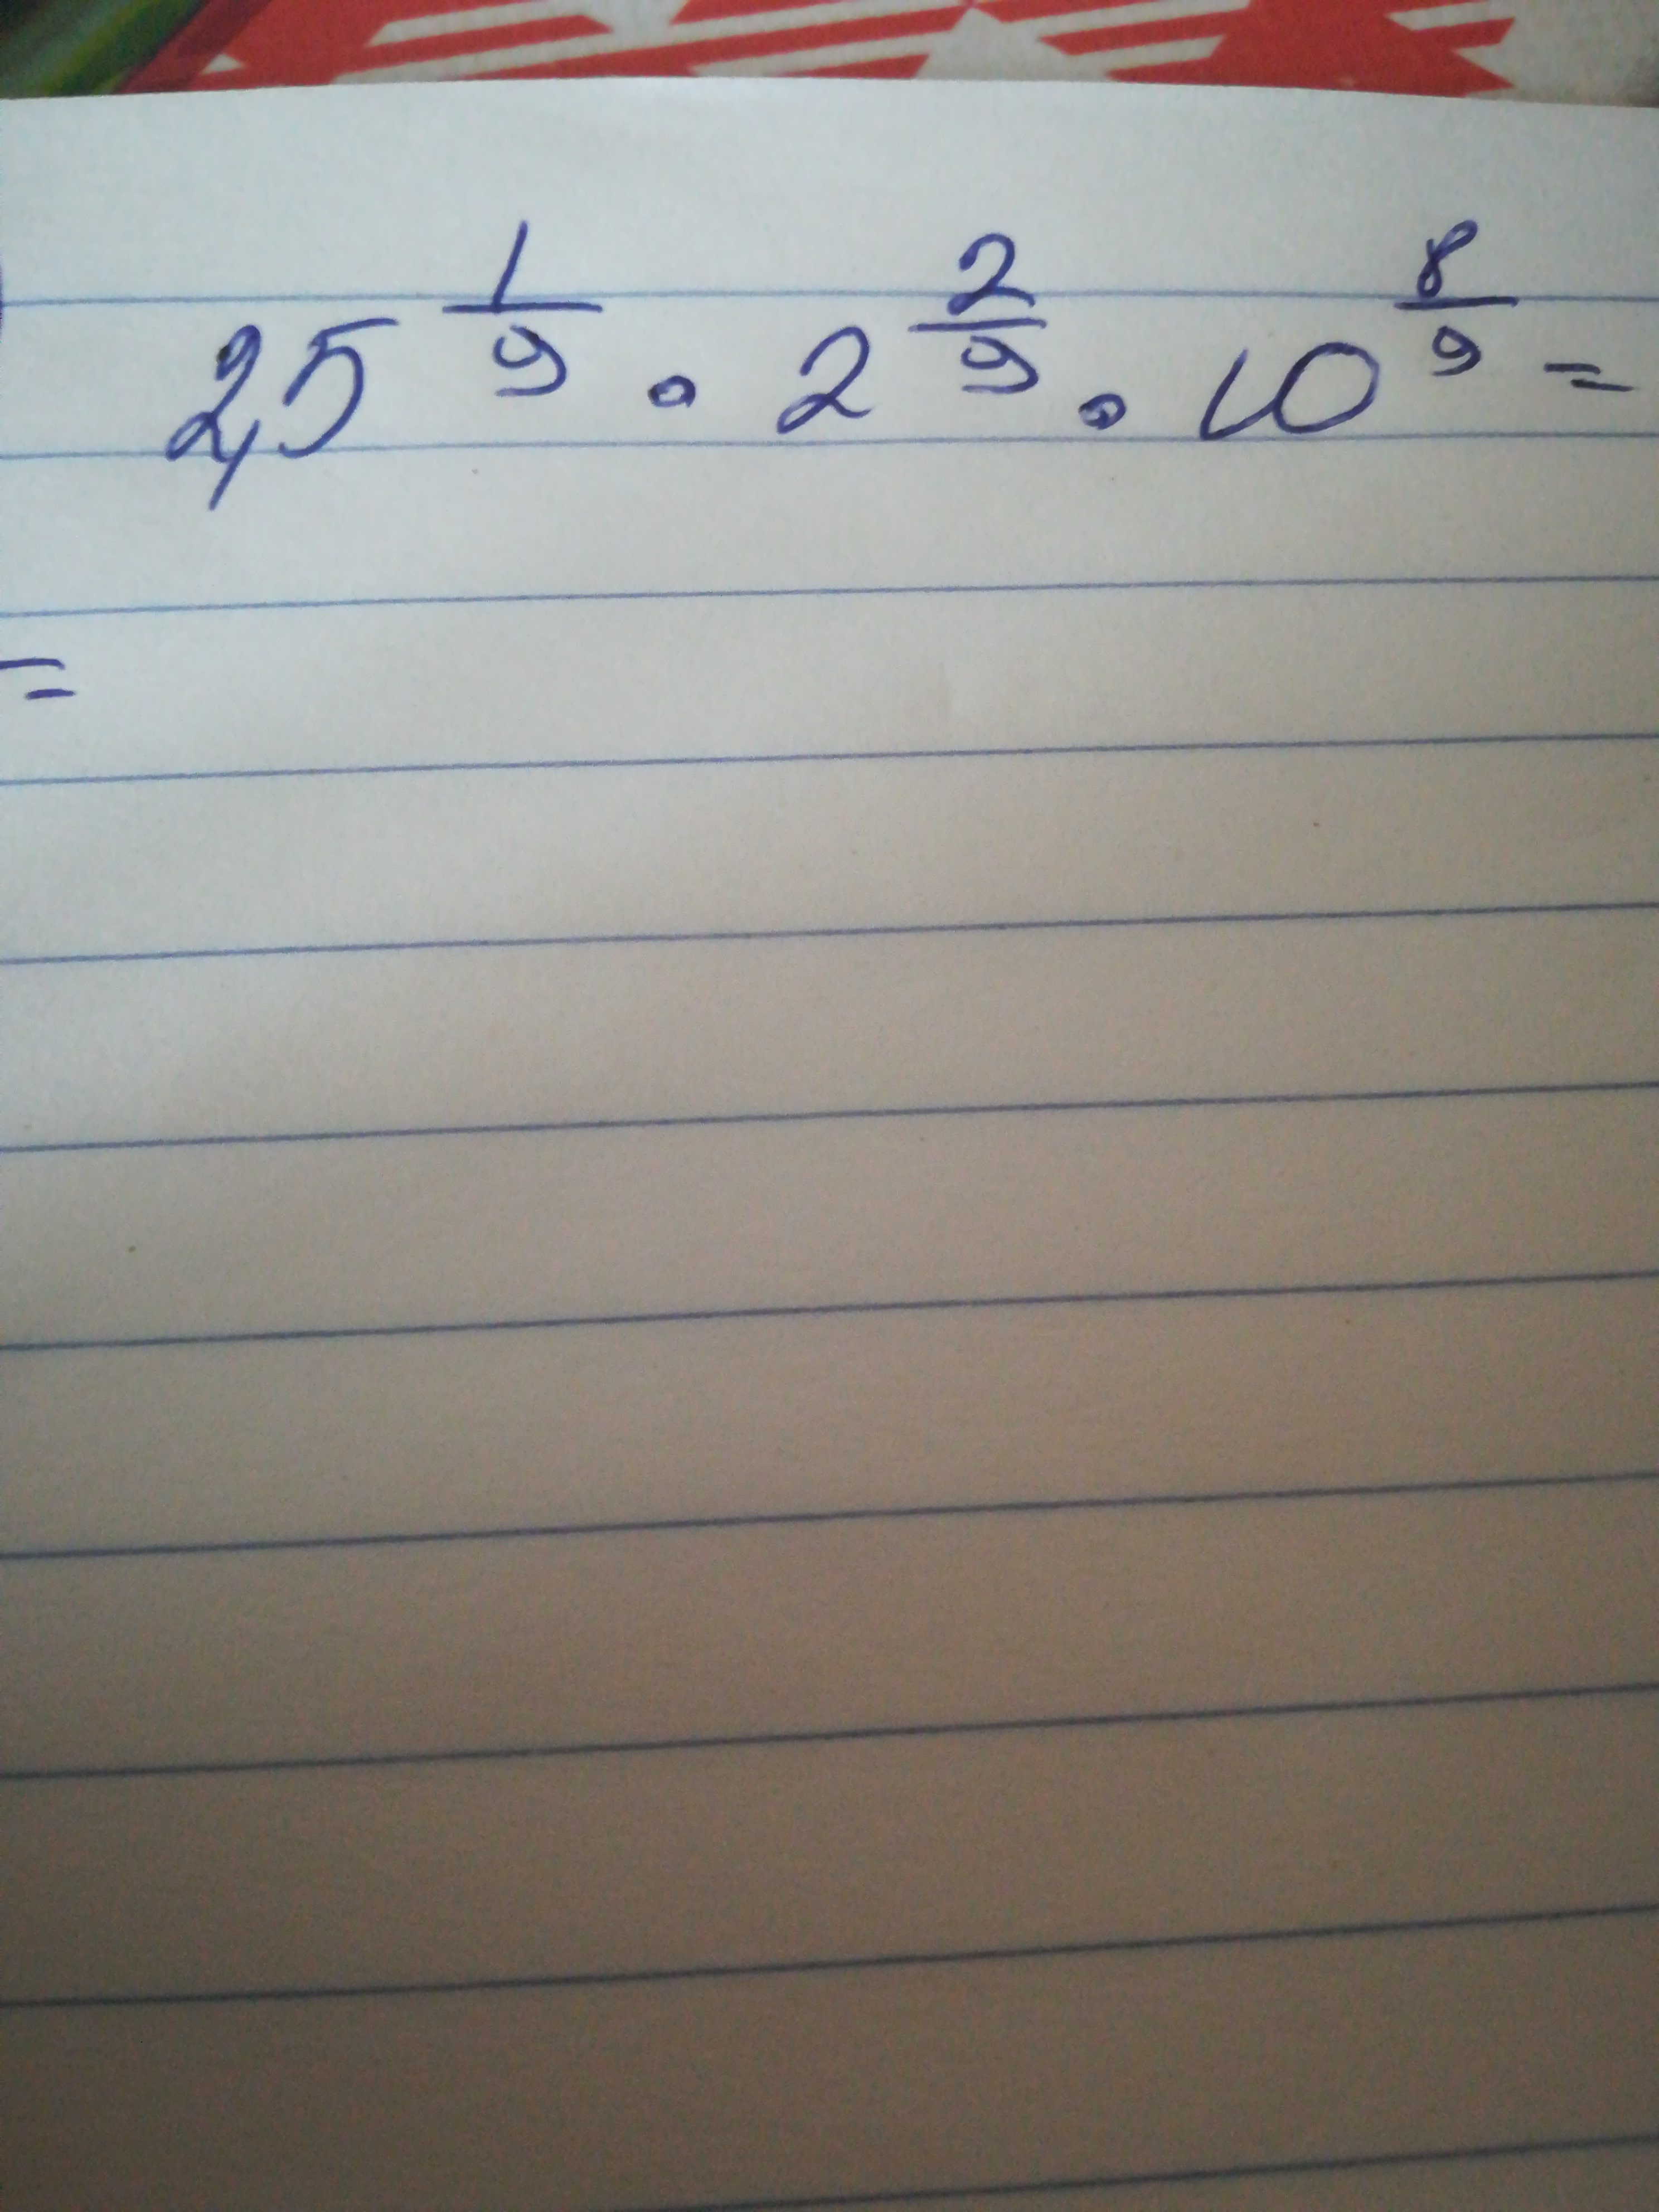 2,5^(1/9) · 2^(2/9) · 10^(8/9) =
=